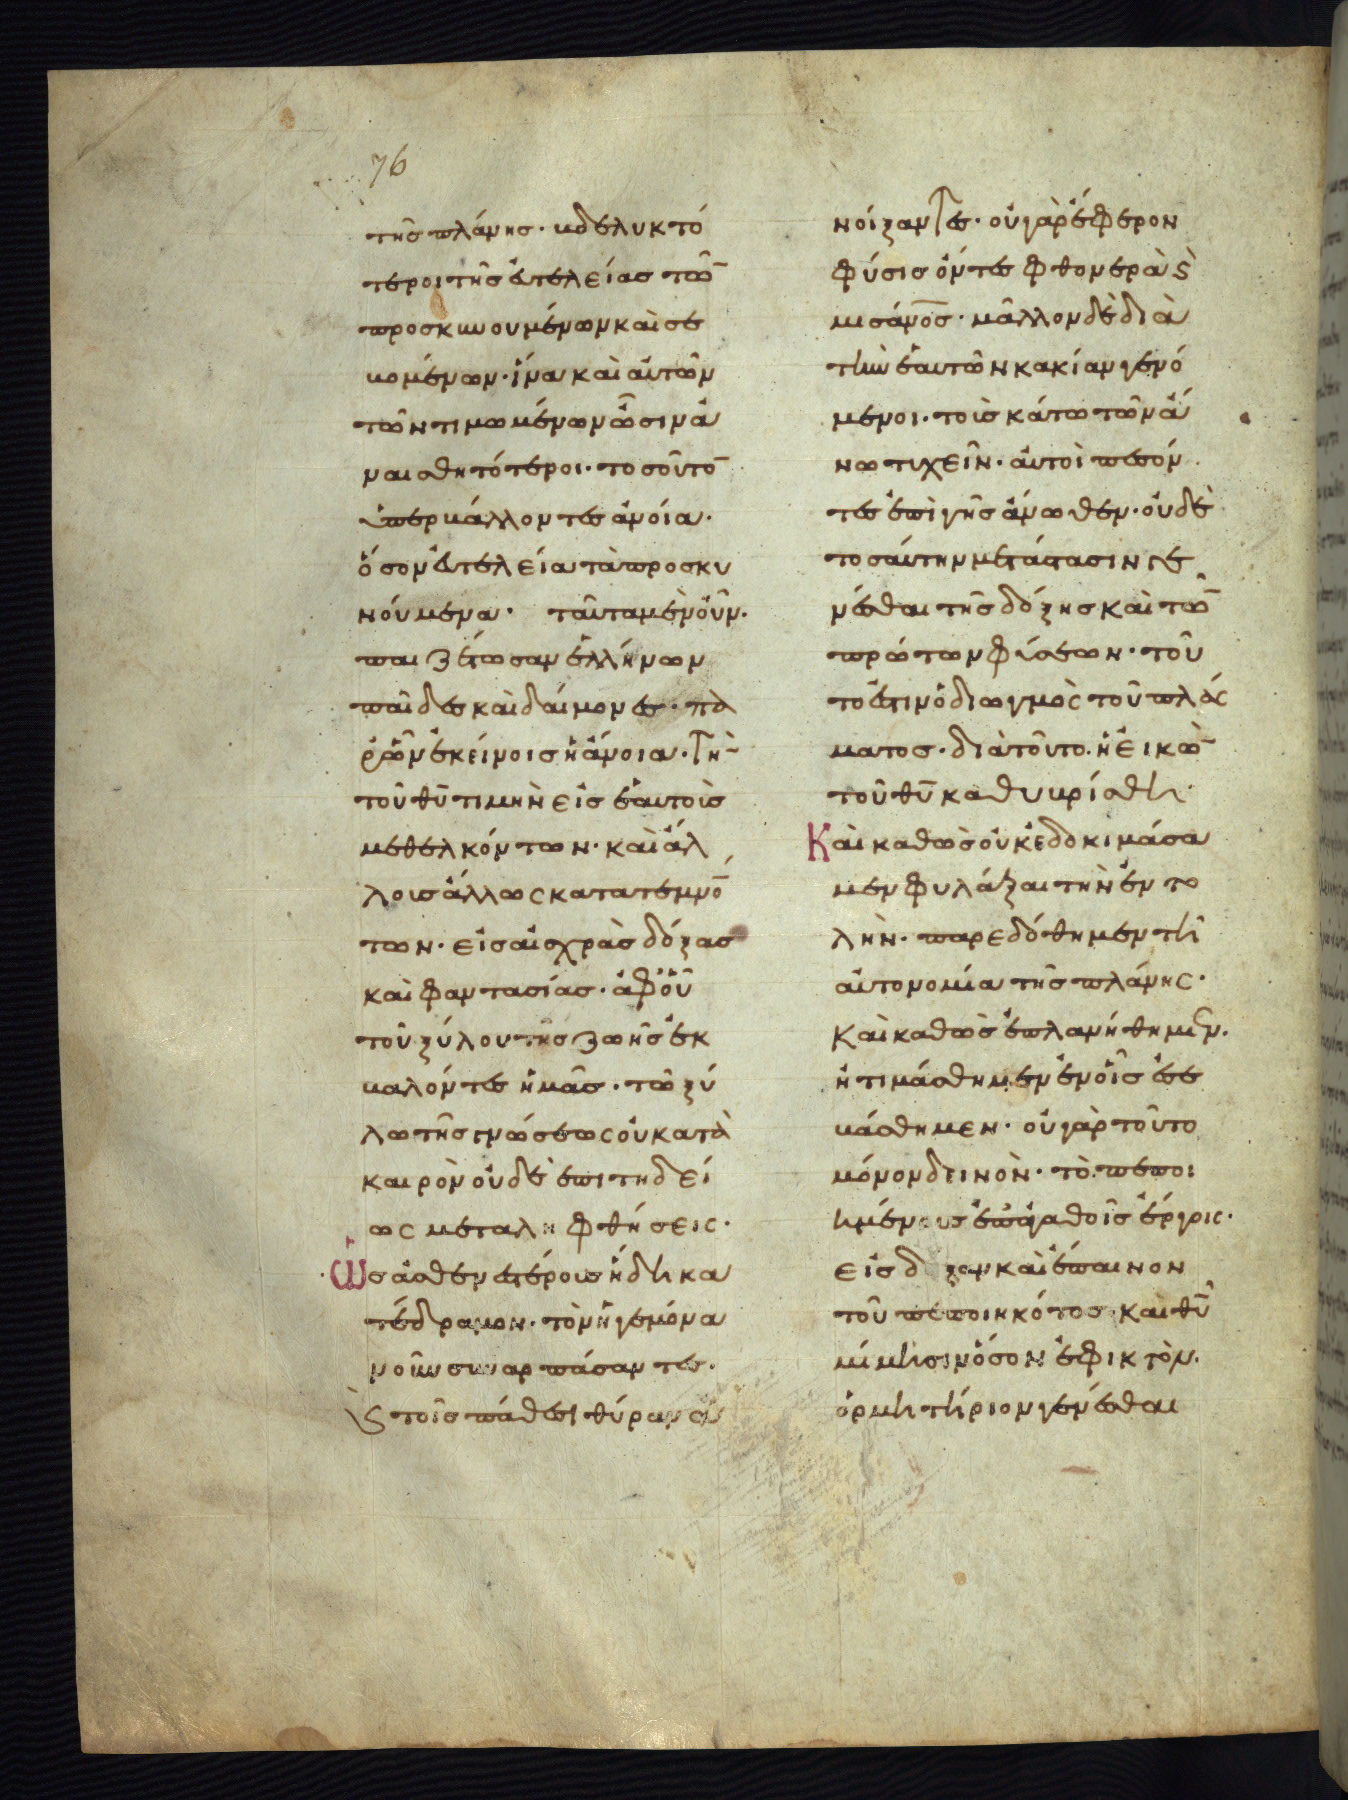 76
τῆς πλάνης· βδελυκτό
τεροι τῆς εὐτελείας τῶ̄
προσκυνουμένων καὶ σε
βομένων· ἵνα καὶ αὐτῶν
τῶν τιμωμένων ὦσιν ἀ
ναισθητότεροι· τοσοῦτο̄
ὑπερβάλλοντες ἀνοία·
ὅσον εὐτελεία τὰ προσκυ
νούμενα· ταῦτα μὲν οὖν·
παιζέτωσαν ἑλλήνων
παῖδες καὶ δαίμονες· πα
ρ' ὧν ἐκείνοις ἡ ἄνοια· τὴ̄
τοῦ θῡ τιμὴν εἰς ἑαυτοὺς
μεθελκόντων· καὶ ἄλ
λους ἄλλως κατατεμνό̄
των· εἰς αἰσχρὰς δόξας
καὶ φαντασίας· ἀφ' οὗ
τοῦ ξύλου τῆς ζωῆς ἐκ
βαλόντες ἡμᾶς· τῶ ξύ
λω τῆς γνώσεως οὐ κατὰ
καιρὸν οὐδὲ ἐπιτηδεί
ως μεταληφθήσεις·
Ὡς ἀσθενεστέροις ἤδη κα
τέδραμον· τὸν ἡγεμόνα
νοῦν συναρπάσαντες·
Ϛ τοῖς πάθεσι θύραν ἀ
νοίξαντες· οὐ γὰρ ἔφερον
φύσις ὄντες φθονερὰ Ϛ
μισάνο̄ς· μᾶλλον δὲ διὰ
τὴν ἑαυτῶν κακίαν γενό
μενοι· τοὺς κάτω τῶν ἄ
νω τυχεῖν· αὐτοὶ πεσόν
τες ἐπὶ γῆς ἄνωθεν· οὐδὲ
τοσαύτην μετάστασιν γε
νέσθαι τῆς δόξης καὶ τῶ̄
πρώτων φύσεων· τοῦ
το ἔστιν ὁ διωγμὸς τοῦ πλάσ
ματος· διὰ τοῦτο ἡ εἰκὼ̄
τοῦ θῡ καθυβρίσθη·
Καὶ καθὼς οὐκ ἐδοκιμάσα
μεν φυλάξαι τὴν ἐντο
λὴν· παρεδόθημεν τῆ
αὐτονομία τῆς πλάνης·
Καὶ καθὼς ἐπλανήθημεν·
ἠτιμάσθημεν ἐν οἷς ἐσε
βάσθημεν· οὐ γὰρ τοῦτο
μόνον δεινὸν· τὸ πεποι
ημένους ἐπ' ἀγαθοῖς ἔργοις·
εἰς δόξαν καὶ ἔπαινον
τοῦ πεποιηκότος· καὶ θῡ
μίμησιν ὅσον ἐφικτὸν·
ὁρμητήριον γενέσθαι